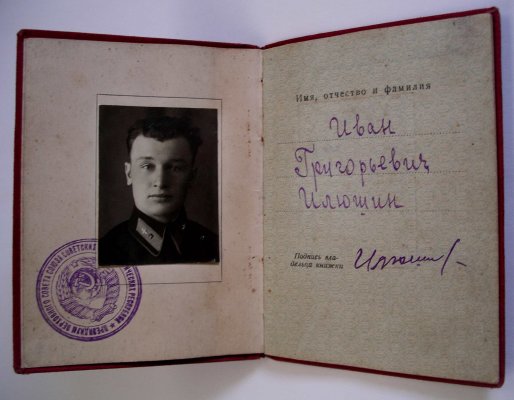 ПРЕЗИДИУМ ВЕРХОВНОГО СОВЕТА СОЮЗА СОВЕТСКИХ
Имя, отчество и фамилия
Иван
Григорьевич
Илюшин
Подпись вла-
дельца книжки
Илюшин